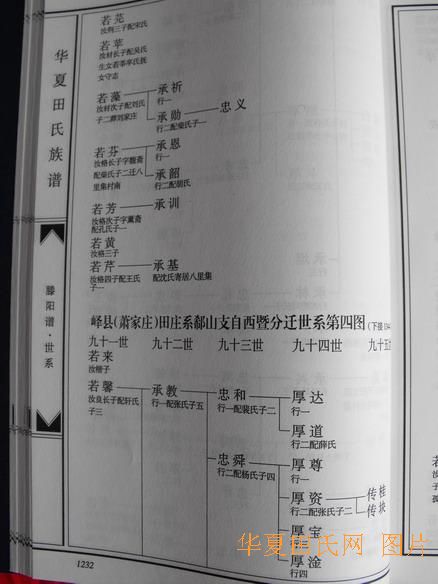 华夏田氏族谱
滕阳谱·世系
若芫
汝荆三子配宋氏
若苹
汝材长子配吴氏
生女若莘卒氏抚
女守志
若藻 承祈
汝材次子配刘氏 行一
子二葬刘家庄 承勋 忠义
行二配柴氏子一
若芬 承恩
汝格长子字馥斋 行一
配柴氏子二迁八 承韶
里集村南 行二配胡氏
若芳 承训
汝格次子字薰斋
配孔氏子一
若黄
汝格三子
若芹 承基
汝格四子配王氏 配沈氏寄居八里集
子一
峄县(萧家庄)田庄系郗山支自西暨分迁世系第四图(下接
九十一世 九十二世 九十三世 九十四世 九十五
若来
汝楷子
若馨 承教 忠和 厚达
汝良长子配轩氏 行一配张氏子五 行一配裴氏子二 行一
子三 厚道
行二配薛氏
忠舜 厚尊
行二配杨氏子四 行一
厚资 传桂
行二配张氏子二 传块
厚宝
行三
厚淦
行四
1232
华夏田氏网 图片